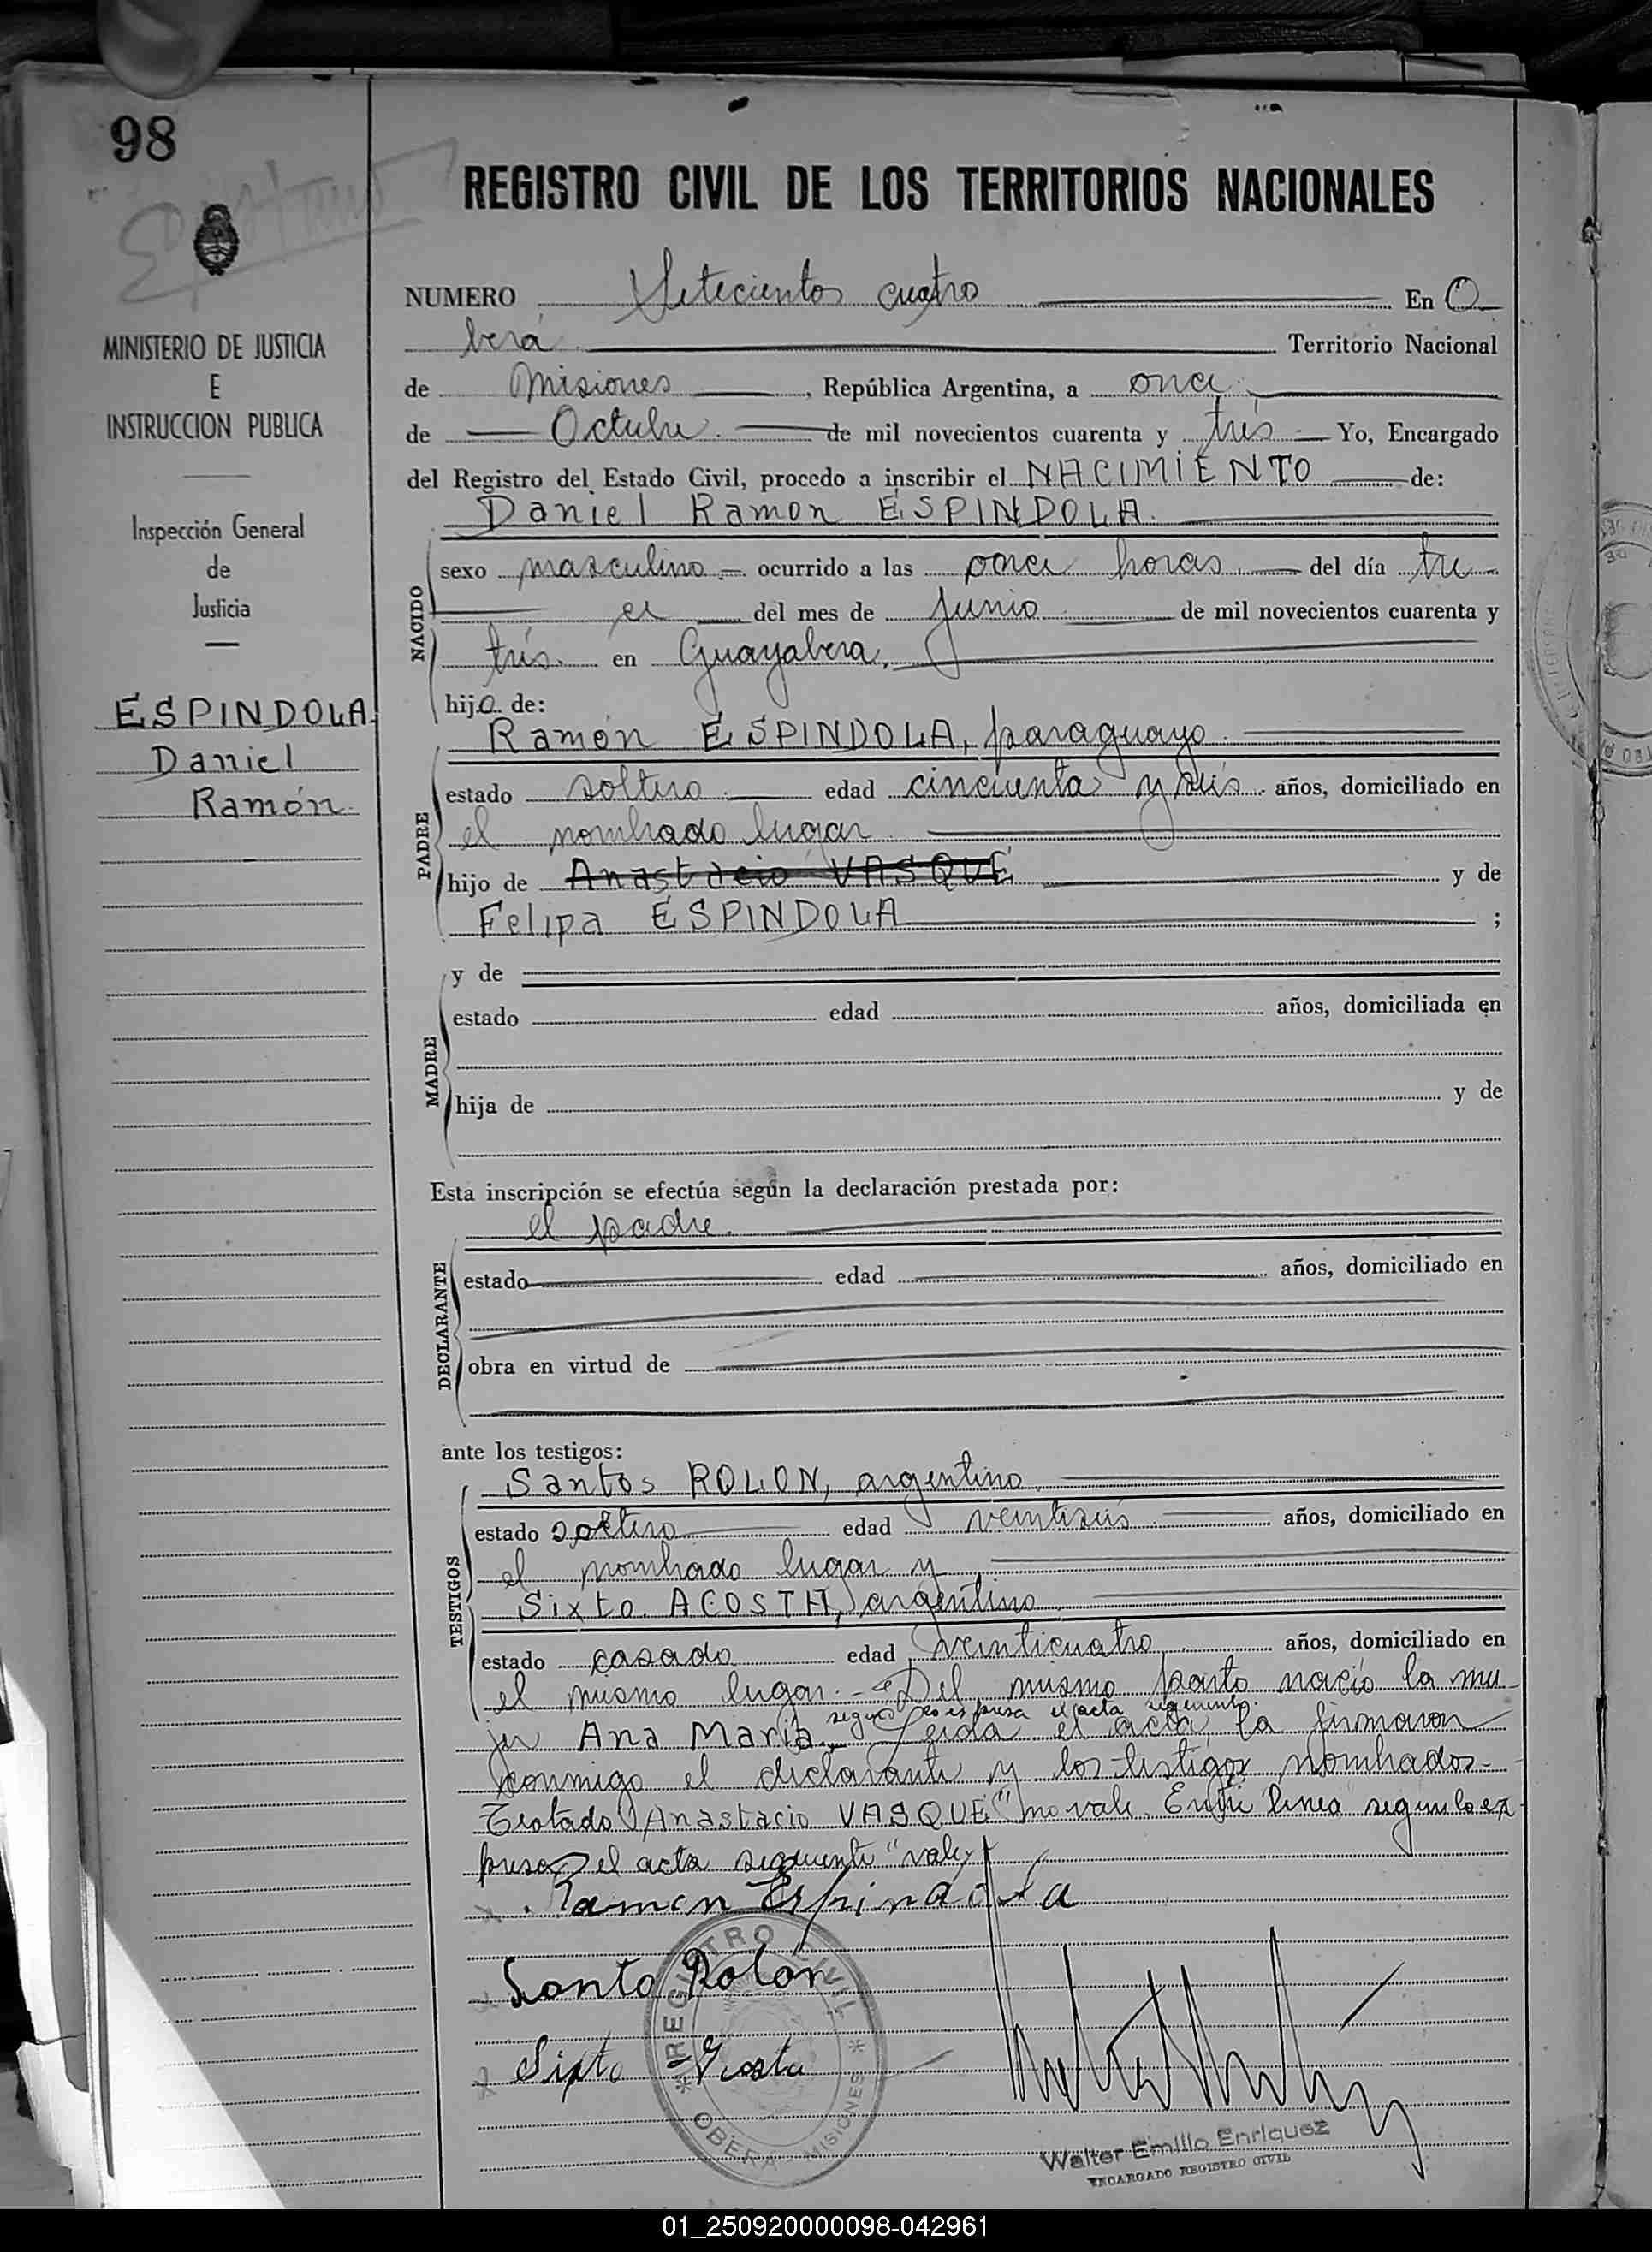 98
REGISTRO CIVIL DE LOS TERRITORIOS NACIONALES
NUMERO Setecientos cuatro En O
berá Territorio Nacional
de Misiones, República Argentina, a once
de Octubre de mil novecientos cuarenta y tres Yo, Encargado
del Registro del Estado Civil, procedo a inscribir el NACIMIENTO de:
Daniel Ramon ESPINDOLA.
MINISTERIO DE JUSTICIA
E
INSTRUCCION PUBLICA
Inspección General
de
Justicia
ESPINDOLA
Daniel
Ramón
NACIDO
sexo masculino ocurrido a las once horas del día tre
es del mes de Junio de mil novecientos cuarenta y
tres en Guayabera,
hijo de:
PADRE
Ramón ESPINDOLA, paraguayo
estado soltero edad cincuenta y seis años, domiciliado en
el nombrado lugar
hijo de Anastacio VASQUE y de
Felipa ESPINDOLA ;
MADRE
y de
estado edad años, domiciliada en
hija de y de
Esta inscripción se efectúa según la declaración prestada por:
el padre.
DECLARANTE
estado edad años, domiciliado en
obra en virtud de
ante los testigos:
TESTIGOS
Santos ROLON, argentino
estado soltero edad veintiseis años, domiciliado en
el nombrado lugar y
Sixto ACOSTA, argentino
estado casado edad veinticuatro años, domiciliado en
el mismo lugar. - Del mismo parto nació la mu
según lo expresa el acta siguiente.
jer Ana María. Leida el acta, la firmaron
conmigo el declarante y los testigos nombrados.
Testado "Anastacio VASQUE" no vale. Entre linea "segun lo ex
presa el acta siguiente" vale.
Ramon Espindola
Santo Rolon
Sixto Acosta
REGISTRO CIVIL
OBERA - MISIONES
Walter Emilio Enriquez
ENCARGADO REGISTRO CIVIL
01_250920000098-042961